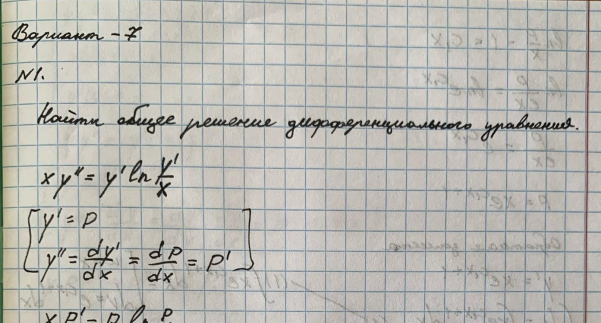 Вариант - 7
№1.
Найти общее решение дифференциального уравнения.
xy'' = y' ln y'/x
[y' = p
y'' = dy'/dx = dp/dx = p']
xp' = p ln p